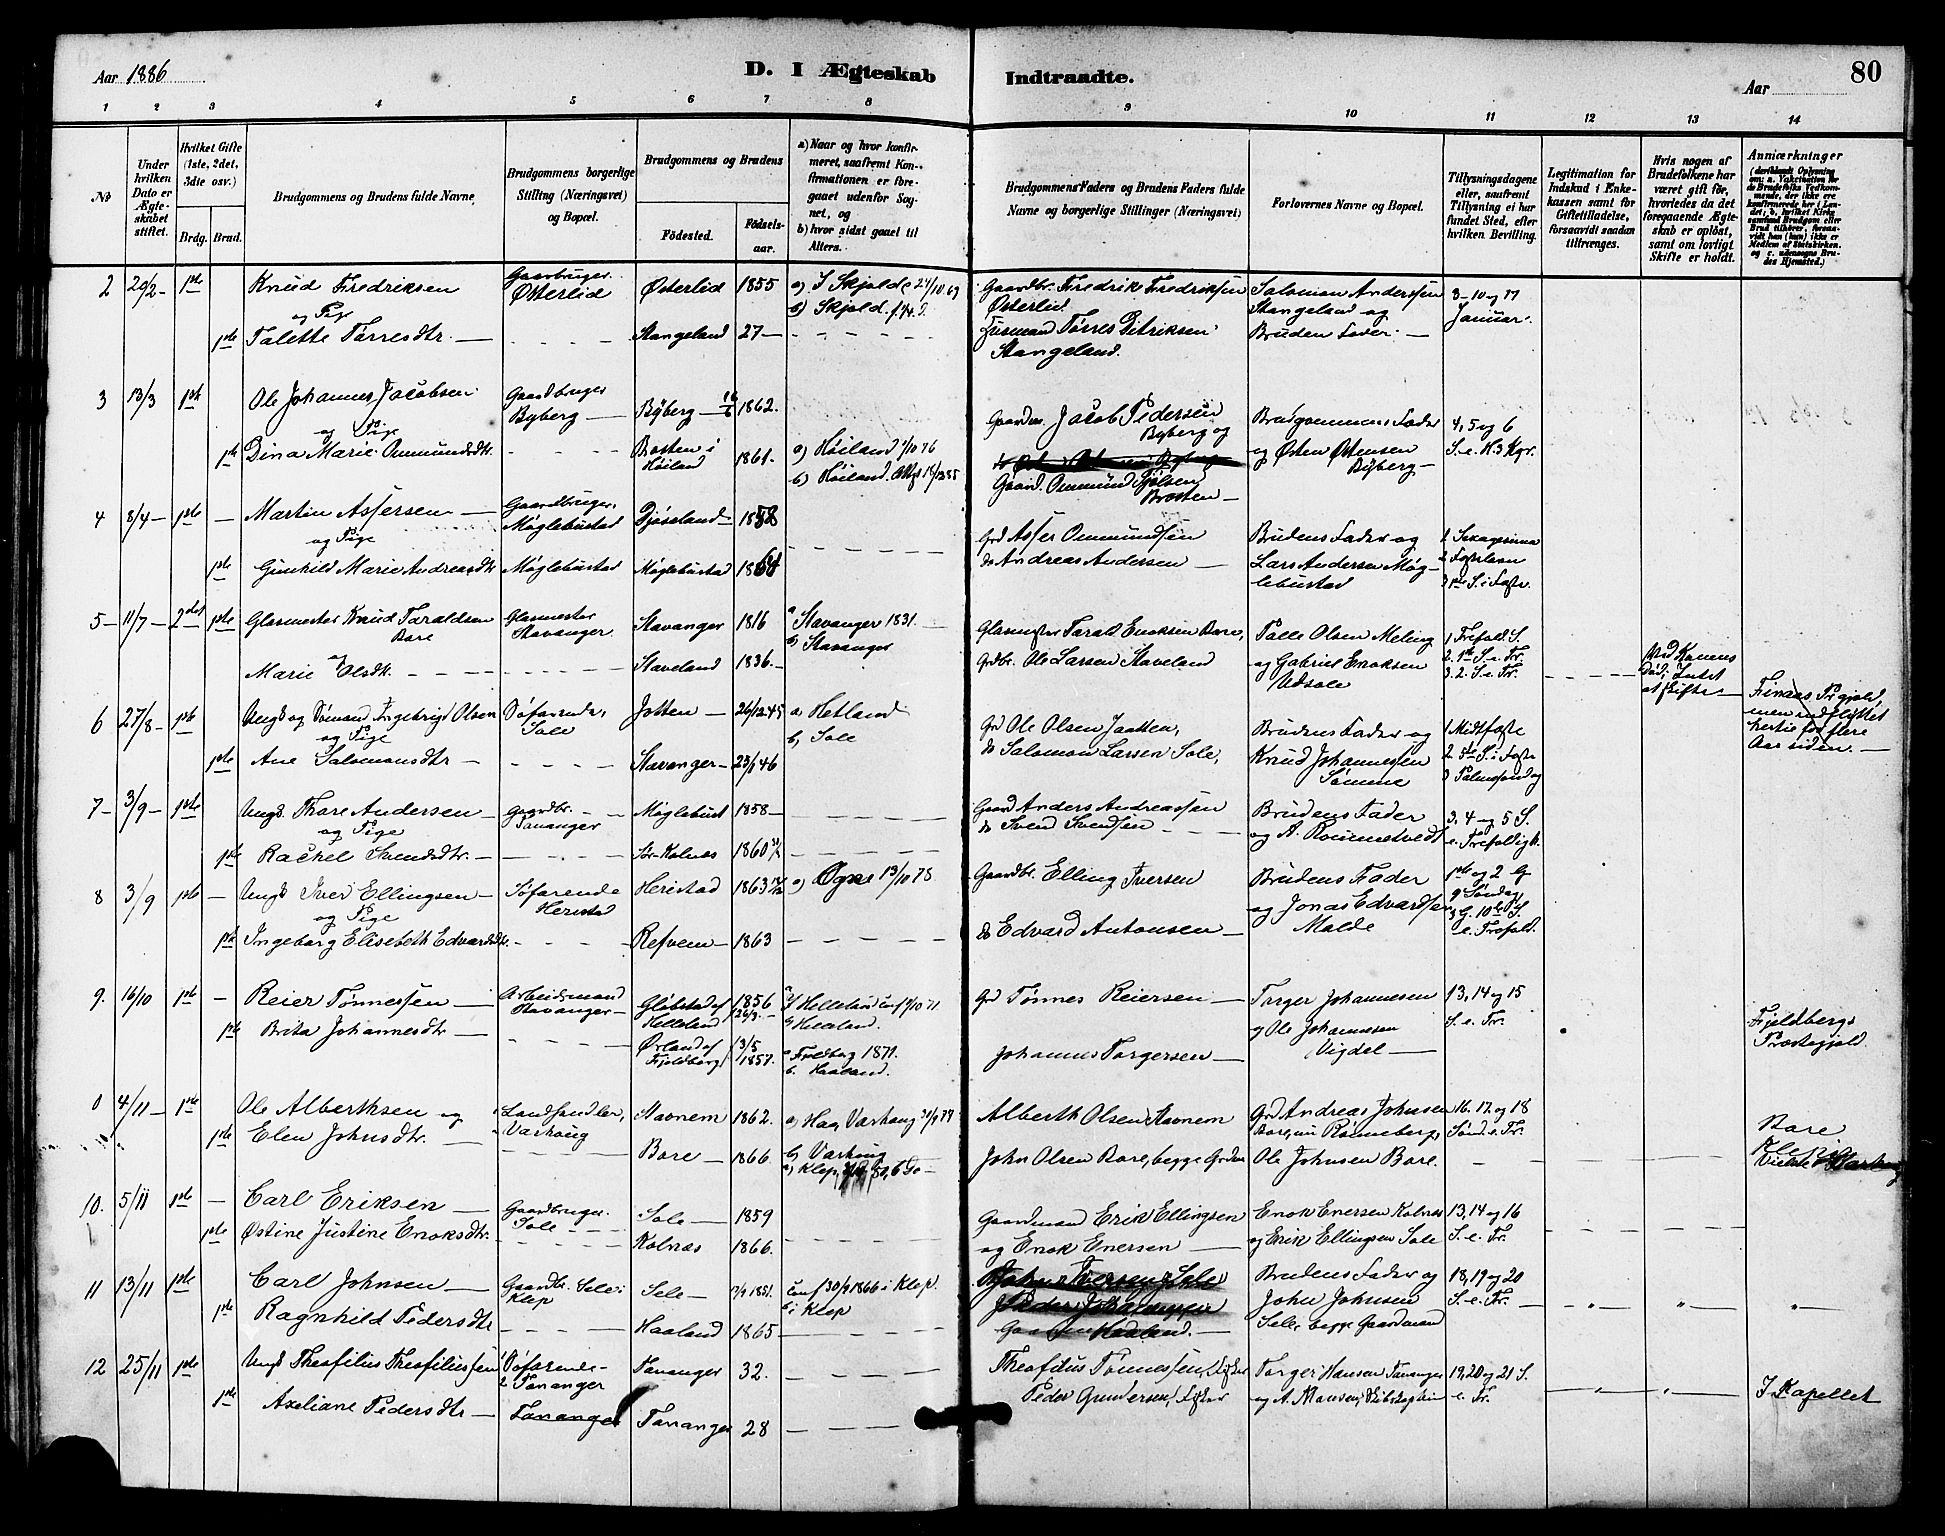 Aar 1886
D. I Ægteskab Indtraadte.
Aar
80
1 2 3 4 5 6 7 8 9 10 11 12 13 14
No
Under hvilken Dato er Ægteskabet stiftet.
Hvilket Gifte (1ste, 2det, 3die osv.)
Brdg. Brud.
Brudgommens og Brudens fulde Navne.
Brudgommens borgerlige Stilling (Næringsvei) og Bopæl.
Brudgommens og Brudens
Födested.
Födselsaar.
a) Naar og hvor konfirmeret, saafremt Konfirmationen er foregaaet udenfor Sognet, og
b) hvor sidst gaaet til Alters.
Brudgommens Faders og Brudens Faders fulde Navne og borgerlige Stillinger (Næringsvei)
Forlovernes Navne og Bopæl.
Tillysningsdagene eller, saafremt Tillysning ei har fundet Sted, efter hvilken Bevilling.
Legitimation for Indskud i Enkekassen samt for Giftetilladelse, forsaavidt saadan tiltrænges.
Hvis nogen af Brudefolkene har været gift för, hvorledes da det foregaaende Ægteskab er oplöst, samt om lovligt Skifte er holdt.
Anmærkninger
2 20/2 1ste Knud Fredriksen Gaardbruger Østerlid Østerlid 1855 a) I Skjold 24/10 69
og Pige b) Skjold
1ste Talette Tørresdtr. Stangeland 27
Gaardbr. Fredrik Fredriksen Østerlid Salomon Anderssen Stangeland og 3–10 og 17 Januar.
Husmand Tørres Ditriksen Stangeland. Bruden Fader
3 13/3 1ste Ole Johannes Jacobsen Gaardbruger Byberg Byberg 1862.
og Pige
1ste Dina Marie Ommundsdtr. Brosten i Høiland 1861. a) Høiland 1/10 76
b) Høiland
Jacob Pedersen Byberg og Brudgommens Fader 4, 5 og 6
og Østen Østensen Byberg S. e. H. 3 Kgr.
Gaard. Ommund Brosten
4 8/4 1ste Martin Assersen Gaardbruger, Møglebustad Djøseland 1858
og Pige
1ste Gunhild Marie Andreasdtr Møglebustad Møglebustad 1861
Grd Asser Ommundsen Brudens Fader og 1 Sexagesima
do Andreas Andersen Lars Andersen Møglebustad 2 Fastelavn
3 1ste S. i Faste.
5 11/7 2det 1ste Glasmester Knud Taraldsen Bore Glasmester Stavanger. Stavanger 1816 a Stavanger 1831.
b) Stavanger
og
Marie Olsdtr. Staveland 1836.
Glasmester Tarald Enoksen Bore, Palle Olsen Meling 1 Trefold. S.
Grdbr. Ole Larsen Staveland og Gabriel Enoksen Udsole 2. 1ste S. e. Tr.
3. 2. S. e. Tr.
Ved Konens Død; Intet at skifte
6 27/8 1ste Ungk. og Sømand Ingebrigt Olsen Søfarende, Sole Jotten 26/12 45 a Hetland
og Pige b, Sole
1ste Ane Salomonsdtr Stavanger 23/1 46
Grd Ole Olsen Jaatten, Brudens Fader og 1 Midtfaste
do Salomon Larsen Sole, Knud Johannessen Sømme 2 S. i Faste
3 Palmesøndag
men indflyttet hertil for flere Aar siden.
7 3/9 1ste Ungk. Thore Andersen Gaardbr. Tananger Møglebust 1858
og Pige
1ste Rachel Svendsdtr. Sør-Kolnæs 1860
Gaard Anders Andreassen Brudens Fader 3, 4 og 5 S.
do Svend Svendsen og A. Rommetvedt e. Trefoldigh.
8 3/9 1ste Ungk. Iver Ellingsen Søfarende Heristad Heristad 1863 a) Ogne 13/10 78
og Pige
1ste Ingeborg Elisebeth Edvardsdtr. Refvem 1863
Gaardbr. Elling Iversen Brudens Fader 1ste og 2 G.
do Edvard Antonsen og Jonas Edvardsen Molde 9 Søndag
3 G. 10de S. e. Trefold.
9. 16/10 1ste Reier Tønnessen Arbeidsmand Stavanger Gløbstad af Helleland 1856 26/3 a Helleland Conf 1/10 71
b Haaland.
1ste Brita Johannesdtr Ørland af Fjeldberg 13/5 1857. a Fjeldberg 1871.
b. Haaland.
Grd Tønnes Reiersen Torger Johannesen 13, 14 og 15
Johannes Torgersen og Ole Johannessen Vigdel S. e. Tr.
Fjeldbergs Præstegjeld.
0 4/11 1ste Ole Alberthsen og Landhandler, Varhoug Stavnem 1862. a) Hag Varhoug
1ste Elen Johnsdtr. Bore 1866. b) Varhoug
a) Klep
Alberth Olsen Stavnem Grd Andreas Johnsen Bore, nu Rønneberg, 16. 17. og 18 Sønd. e. Tr.
John Olsen Bore, begge Grdm Ole Johnsen Bore.
Bore Klep
10. 5/11 1ste Carl Eriksen Gaardbruger. Sole Sole 1859
1ste Østine Justine Enoksdtr. Kolnæs 1866.
Gaardmand Erik Ellingsen Enok Enersen Kolnæs 13, 14 og 16
og Enok Enersen og Erik Ellingsen Sole S. e. Tr.
11 13/11 1ste Carl Johnsen Gaardbr. Sele i Klep Sele 1851. Conf 30/9 1866 i Klep.
b i Klep
1ste Ragnhild Pedersdtr Haaland 1865
Brudens Fader og 18, 19 og 20
Haaland. John Johnsen Sele, begge Gaardmænd S. e. Tr.
12 25/11 1ste Ungk Theofilus Theofilussen Søfarende Tananger Tananger 32.
1ste Axeliane Pedersdtr Tananger Tananger 28
Theofilus Tønnessen, Fisker Torger Hansen Tananger 19, 20 og 21 S.
Peder Gundersen, Fisker og A. Monsen, e. Tr.
I Kapellet